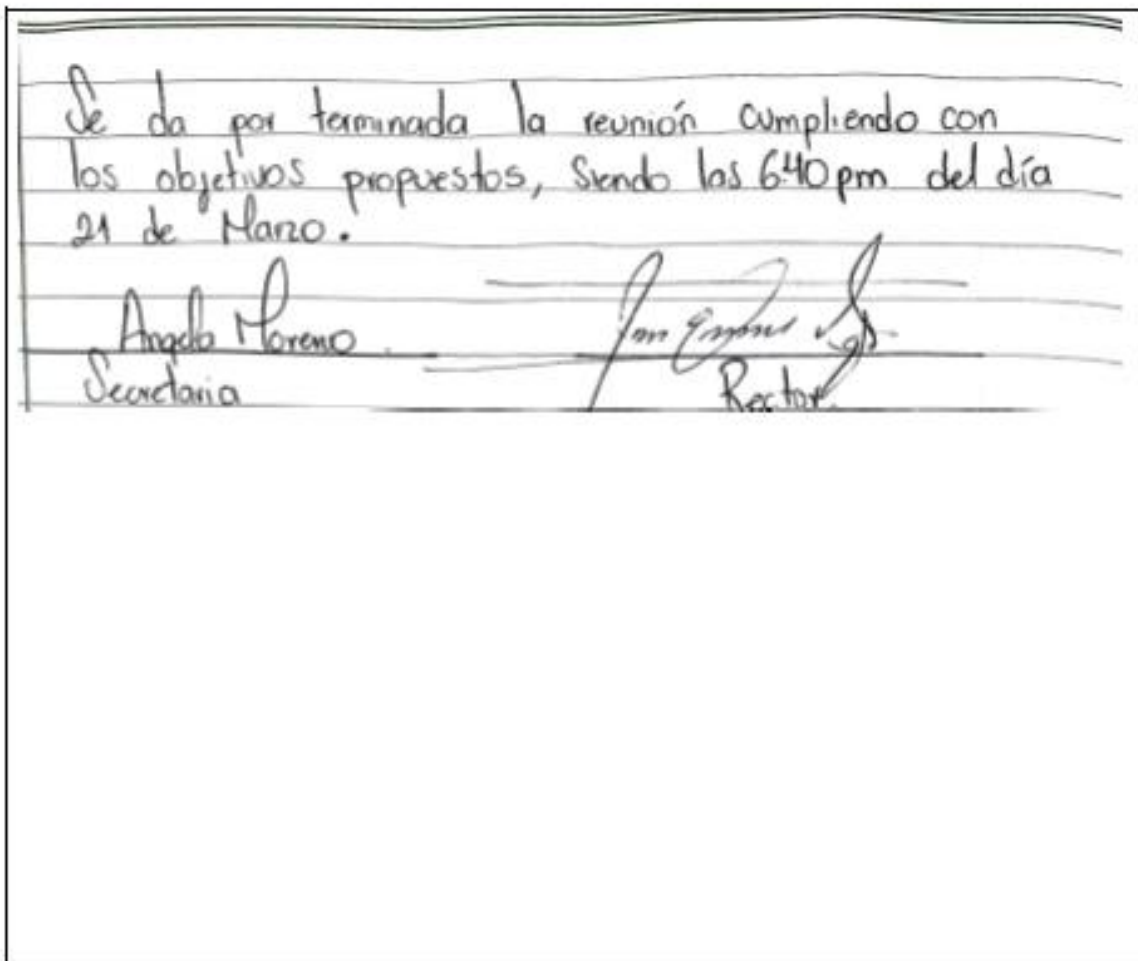 Se da por terminada la reunión cumpliendo con
los objetivos propuestos, Siendo las 6:40 pm del día
21 de Marzo.
Angela Moreno
Secretaria
Rector